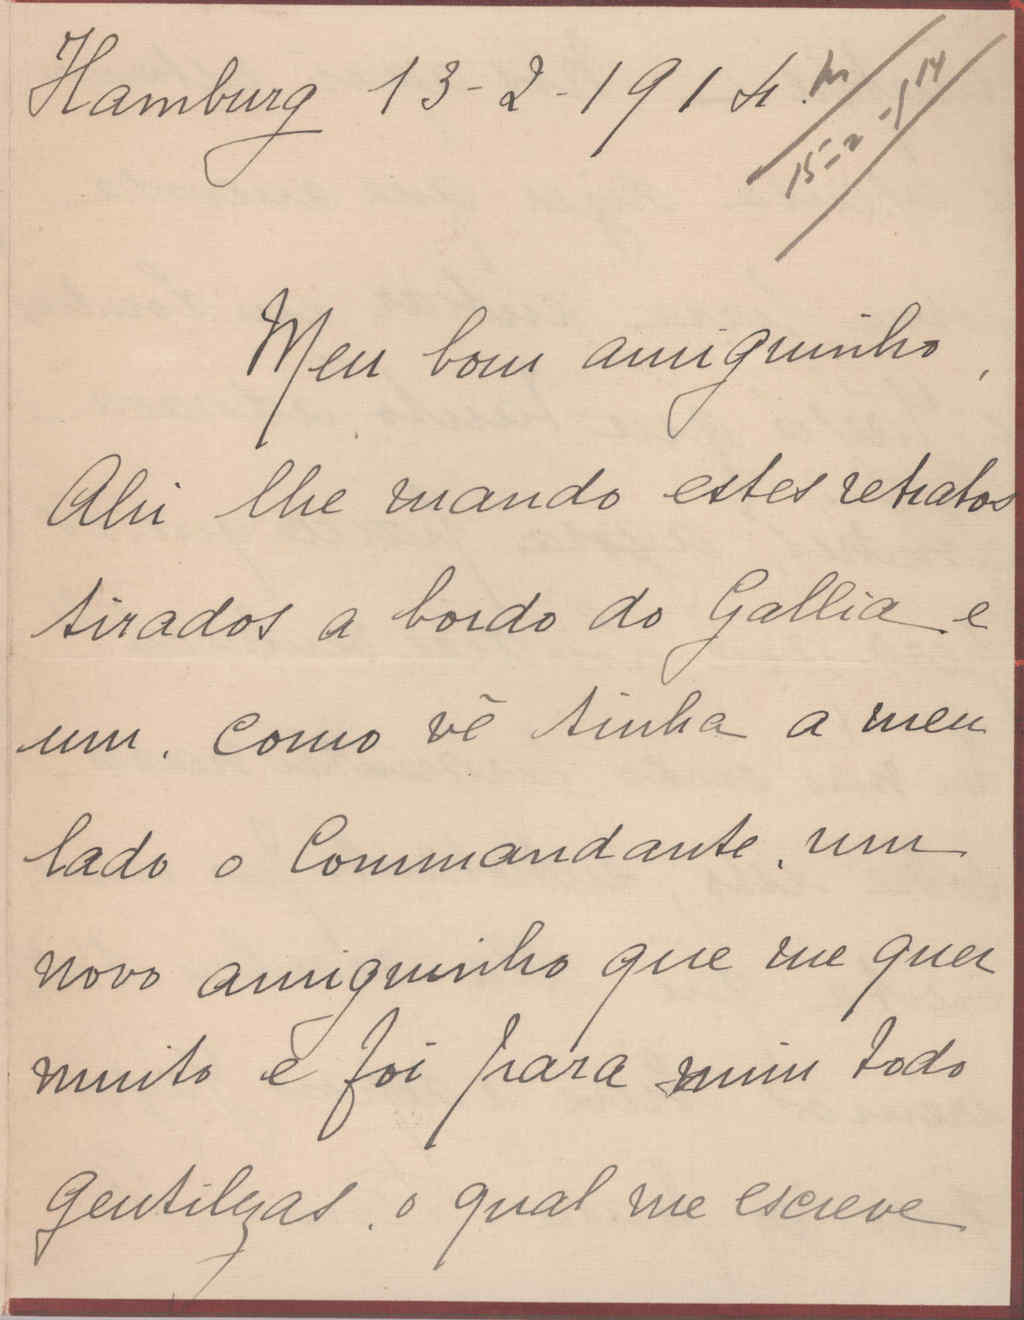 Hamburg 13-2-1914.
15-2-914
Meu bom amiguinho,
Ahi lhe mando estes retratos
tirados a bordo do Gallia e
um, como vê tinha a meu
lado o Commandante, um
novo amiguinho que me quer
muito e foi para mim todo
gentilezas, o qual me escreve